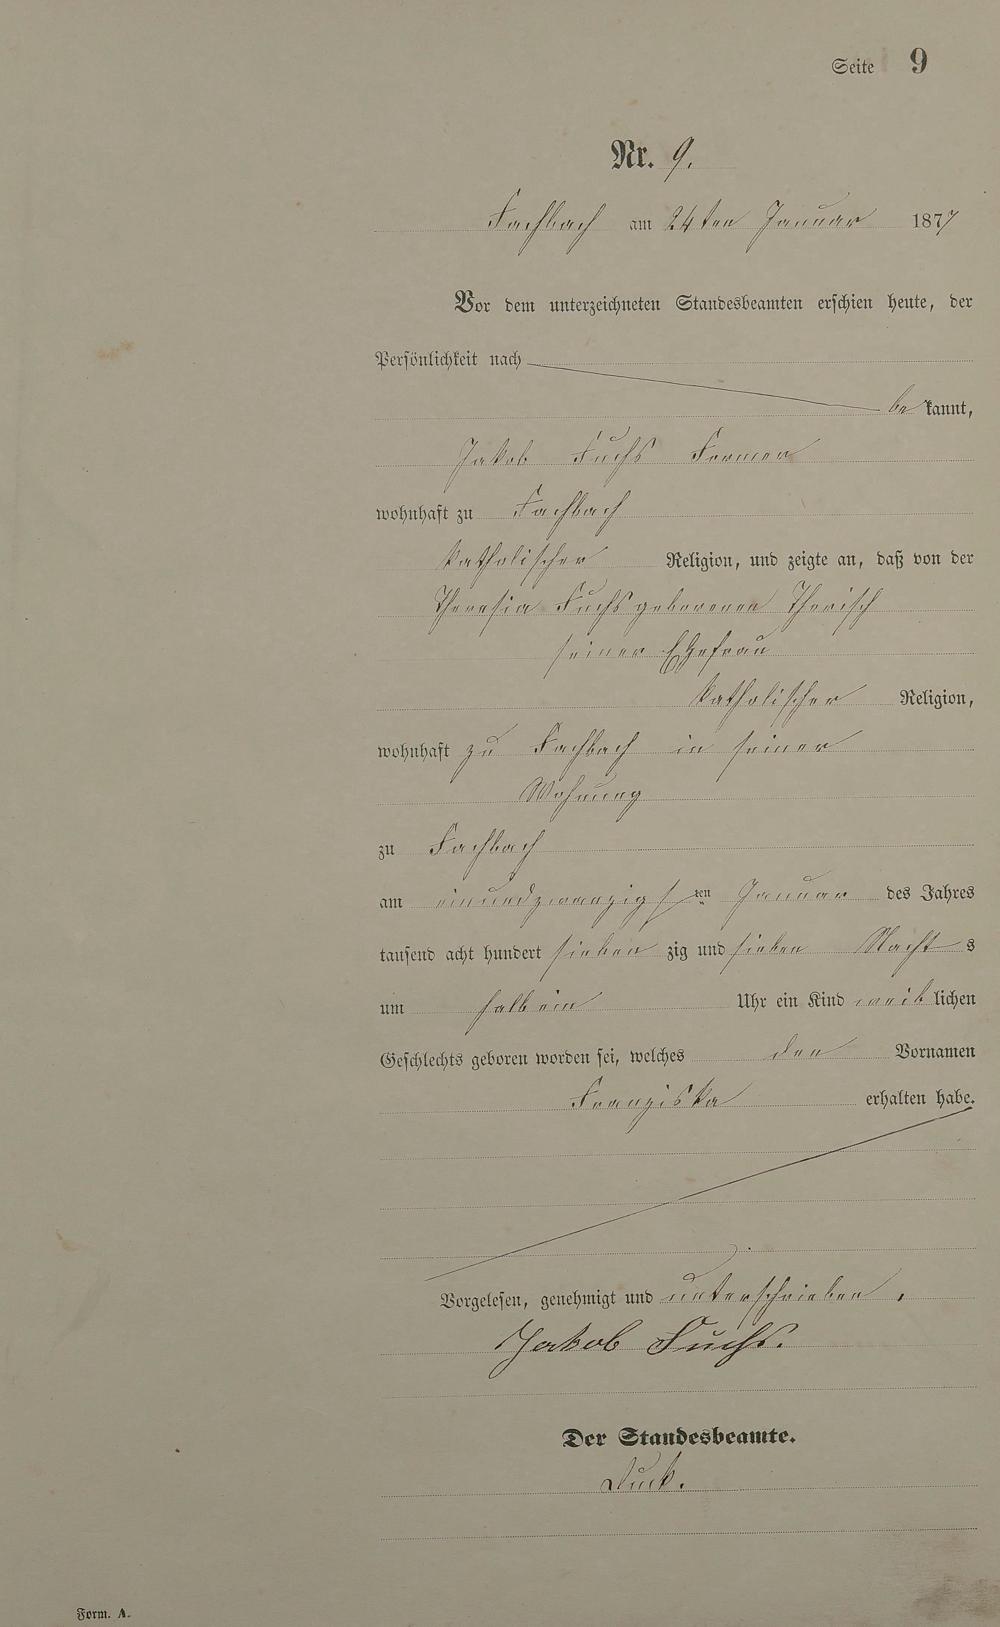 Seite 9
Nr. 9.
Fachbach am 24ten Januar 1877
Vor dem unterzeichneten Standesbeamten erschien heute, der
Persönlichkeit nach
bekannt,
Jakob Fuchs Former
wohnhaft zu Fachbach
katholischer Religion, und zeigte an, daß von der
Theresia Fuchs geborenen Therisch
seiner Ehefrau
katholischer Religion,
wohnhaft zu Fachbach in seiner
Wohnung
zu Fachbach
am einundzwanzigsten Januar des Jahres
tausend acht hundert siebenzig und sieben Nachts
um halb ein Uhr ein Kind weiblichen
Geschlechts geboren worden sei, welches den Vornamen
Franziska erhalten habe.
Vorgelesen, genehmigt und unterschrieben,
Jakob Fuchs.
Der Standesbeamte.
Form. A.